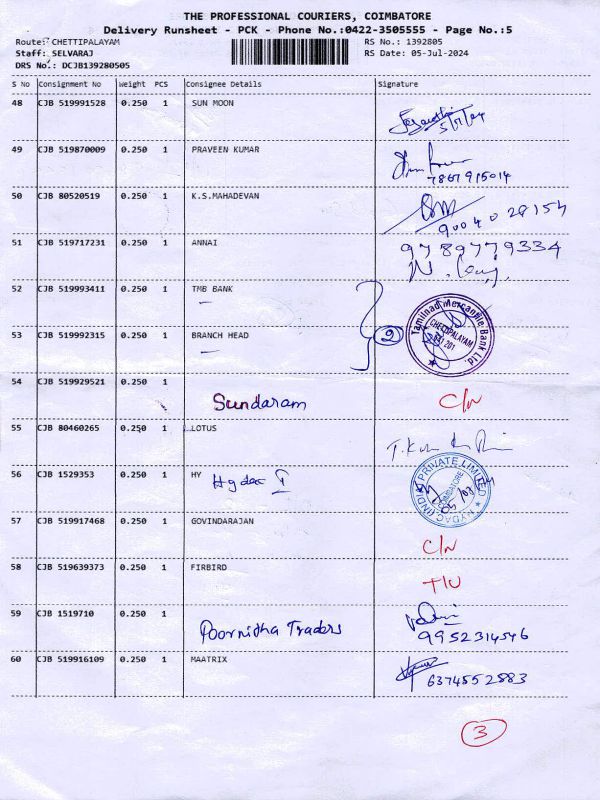 THE PROFESSIONAL COURIERS, COIMBATORE
Delivery Runsheet - PCK - Phone No.:0422-3505555 - Page No.:5
Route: CHETTIPALAYAM RS No.: 1392805
Staff: SELVARAJ RS Date: 05-Jul-2024
DRS No.: DCJB139280505
S No Consignment No Weight PCS Consignee Details Signature
48 CJB 519991528 0.250 1 SUN MOON
5/7/24
49 CJB 519870009 0.250 1 PRAVEEN KUMAR
7867915014
50 CJB 80520519 0.250 1 K.S.MAHADEVAN
90040 28154
51 CJB 519717231 0.250 1 ANNAI 9789779334
52 CJB 519993411 0.250 1 TMB BANK
2
Tamilnad Mercantile Bank Ltd.
CHETTIPALAYAM
53 CJB 519992315 0.250 1 BRANCH HEAD
54 CJB 519929521 0.250 1
Sundaram C/N
55 CJB 80460265 0.250 1 LOTUS
56 CJB 1529353 0.250 1 HY Hydac I
HYDAC (INDIA) PRIVATE LIMITED
COIMBATORE
57 CJB 519917468 0.250 1 GOVINDARAJAN
C/N
58 CJB 519639373 0.250 1 FIRBIRD
59 CJB 1519710 0.250 1
Poornitha Traders 9952314546
60 CJB 519916109 0.250 1 MAATRIX
6374552883
3